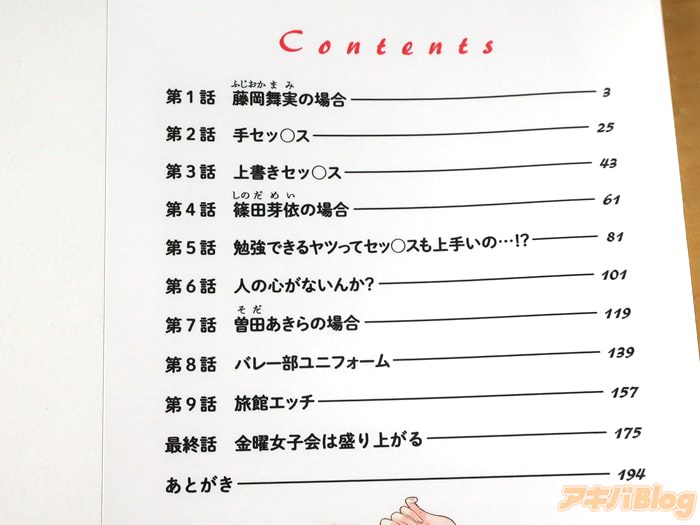 Contents
ふじおか ま み
第1話 藤岡舞実の場合 3
第2話 手セッ○ス 25
第3話 上書きセッ○ス 43
しのだ めい
第4話 篠田芽依の場合 61
第5話 勉強できるヤツってセッ○スも上手いの…!? 81
第6話 人の心がないんか? 101
そだ
第7話 曽田あきらの場合 119
第8話 バレー部ユニフォーム 139
第9話 旅館エッチ 157
最終話 金曜女子会は盛り上がる 175
あとがき 194
アキバBlog